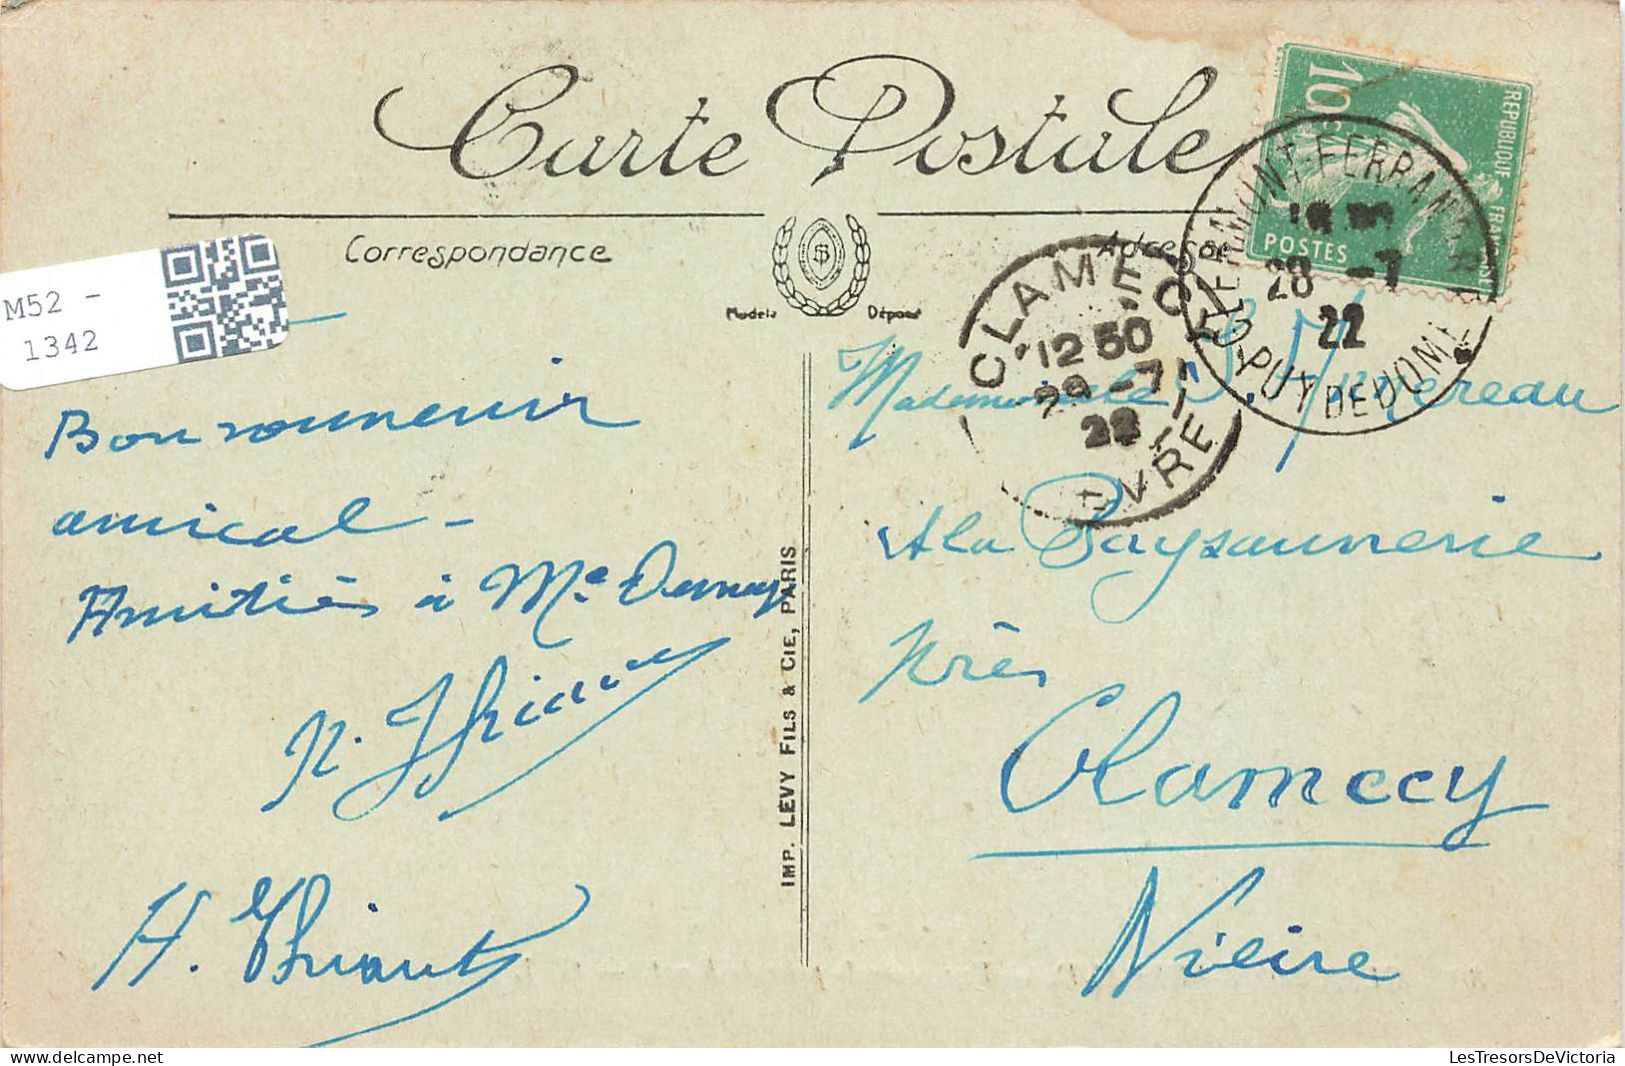 Carte Postale
Correspondance
Adresse
SB
Modèle Déposé
RÉPUBLIQUE FRANÇAISE
10c
POSTES
CLERMONT-FERRAND
28 -7
22
PUY DE DOME
CLAMECY
12 50
29 -7
22
NIÈVRE
M52 -
1342
Bon souvenir
amical -
Amitiés à Me
H. Thriault
IMP. LÉVY FILS & CIE, PARIS
Mademoiselle
A la Paysannerie
près
Clamecy
Nièvre
LesTresorsDeVictoria